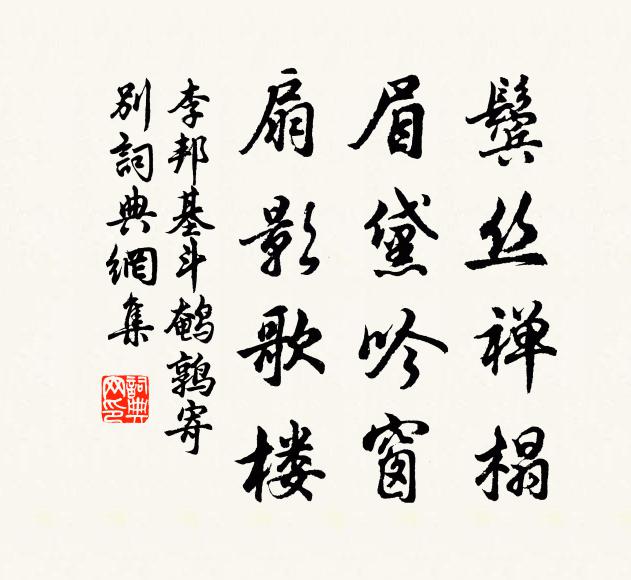 鬓丝禅榻
眉黛吟窗
扇影歌楼
李邦基斗鹌鹑寄
别词典網集
詞典网印